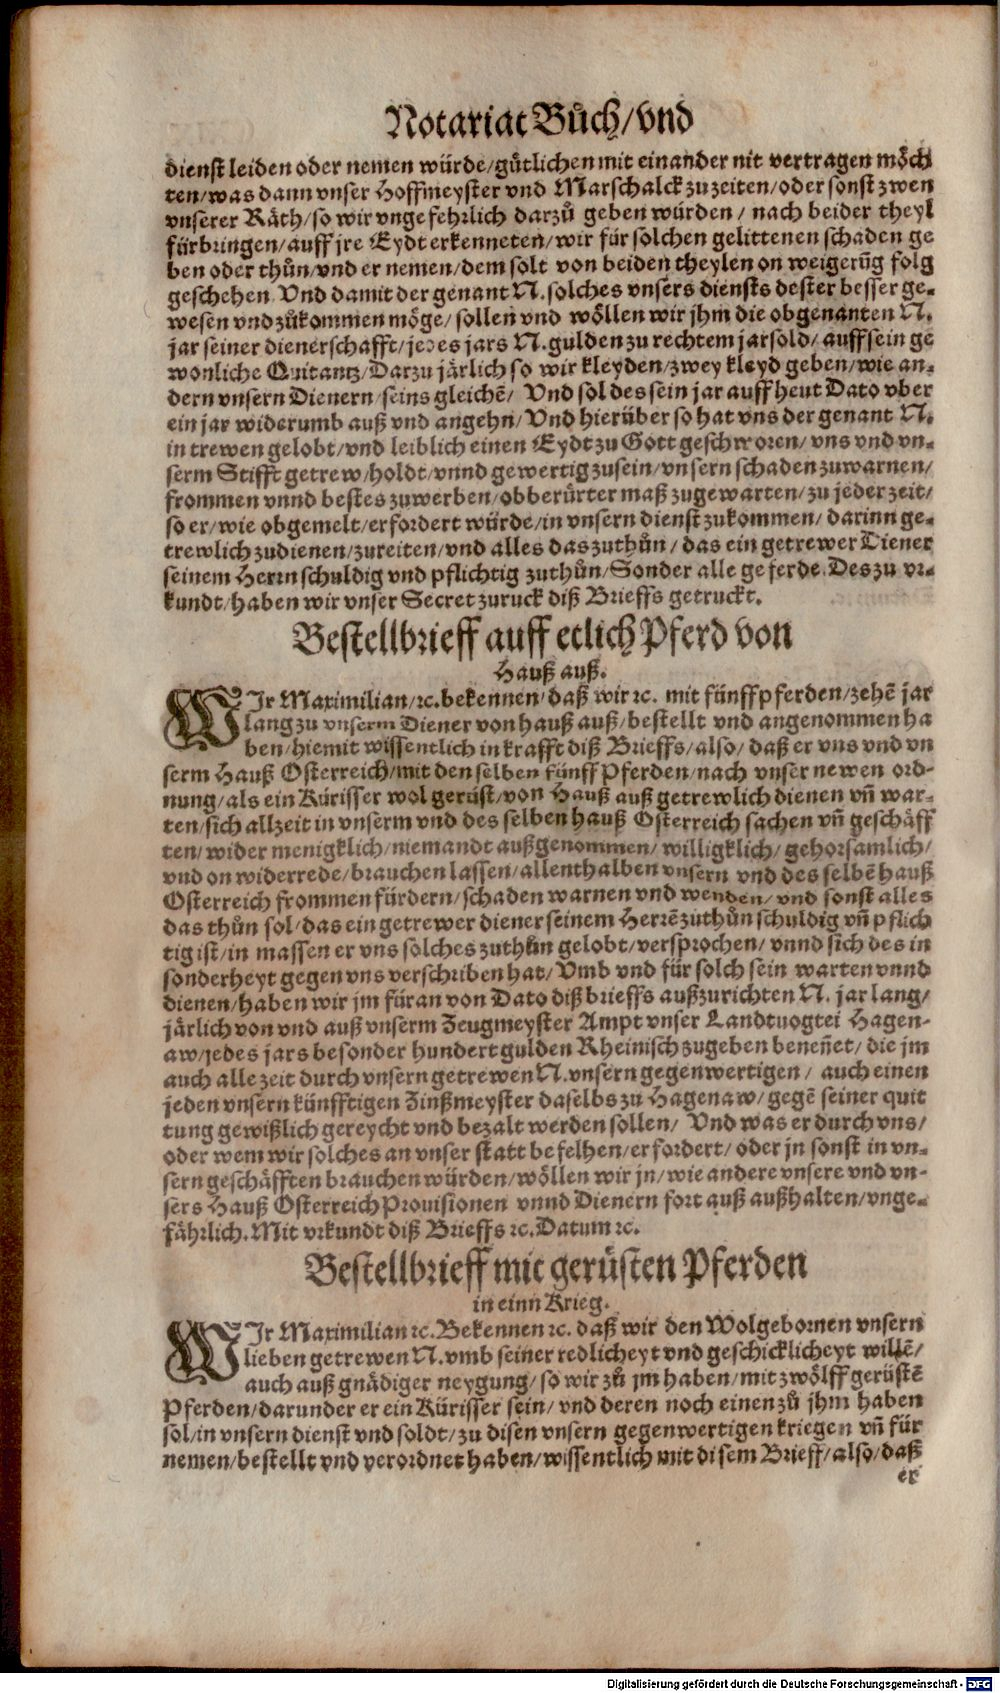 Notariat Bůch/vnd
dienst leiden oder nemen würde/gůtlichen mit einander nit vertragen möch
ten/was dann vnser Hoffmeyster vnd Marschalck zuzeiten/oder sonst zwen
vnserer Räth/so wir vngefehrlich darzů geben würden/ nach beider theyl
fürbringen/auff jre Eydt erkenneten/wir für solchen gelittenen schaden ge
ben oder thůn/vnd er nemen/dem solt von beiden theylen on weigerūg folg
geschehen. Vnd damit der genant N. solches vnsers diensts dester besser ge-
wesen vnd zůkommen möge/sollen vnd wöllen wir jhm die obgenanten N.
jar seiner dienerschafft/jedes jars N. gulden zu rechtem jarsold/auff sein ge
wonliche Quitantz/Darzu järlich so wir kleyden/zwey kleyd geben/wie an-
dern vnsern Dienern/seins gleichē/ Vnd sol des sein jar auff heut Dato vber
ein jar widerumb auß vnd angehn/Vnd hierüber so hat vns der genant N.
in trewen gelobt/vnd leiblich einen Eydt zu Gott geschworen/vns vnd vn-
serm Stifft getrew/holdt/vnnd gewertig zusein/vnsern schaden zuwarnen/
frommen vnnd bestes zuwerben/obberürter maß zugewarten/zu jeder zeit/
so er/wie obgemelt/erfordert würde/in vnsern dienst zukommen/darinn ge-
trewlich zudienen/zureiten/vnd alles das zuthůn/das ein getrewer Diener
seinem Herrn schuldig vnd pflichtig zuthůn/Sonder alle geferde. Des zu vr-
kundt/haben wir vnser Secret zuruck diß Brieffs getruckt.
Bestellbrieff auff etlich Pferd von
Hauß auß.
WIr Maximilian/ꝛc. bekennen/daß wir ꝛc. mit fünff pferden/zehē jar
lang zu vnserm Diener von hauß auß/bestellt vnd angenommen ha
ben/hiemit wissentlich in krafft diß Brieffs/also/daß er vns vnd vn
serm Hauß Osterreich/mit denselben fünff Pferden/nach vnser newen ord-
nung/als ein Kürisser wol gerüst/von Hauß auß getrewlich dienen vñ war-
ten/sich allzeit in vnserm vnd desselben hauß Osterreich sachen vñ geschäff
ten/wider menigklich/niemandt außgenommen/willigklich/gehorsamlich/
vnd on widerrede/brauchen lassen/allenthalben vnsern vnd desselbē hauß
Osterreich frommen fürdern/schaden warnen vnd wenden/vnd sonst alles
das thůn sol/das ein getrewer diener seinem Herrē zůthůn schuldig vñ pflich
tig ist/in massen er vns solches zuthůn gelobt/versprochen/vnnd sich des in
sonderheyt gegen vns verschriben hat/Vmb vnd für solch sein warten vnnd
dienen/haben wir jm füran von Dato diß brieffs außzurichten N. jar lang/
järlich von vnd auß vnserm Zeugmeyster Ampt vnser Landtuogtei Hagen-
aw/jedes jars besonder hundert gulden Rheinisch zugeben beneñet/die jm
auch allezeit durch vnsern getrewen N. vnsern gegenwertigen/ auch einen
jeden vnsern künfftigen Zinßmeyster daselbs zu Hagenaw/gegē seiner quit
tung gewißlich gereycht vnd bezalt werden sollen/ Vnd was er durch vns/
oder wem wir solches an vnser statt befelhen/erfordert/oder jn sonst in vn-
sern geschäfften brauchen würden/wöllen wir jn/wie andere vnsere vnd vn-
sers Hauß Osterreich Prouisionen vnnd Dienern fort auß außhalten/vnge-
fährlich. Mit vrkundt diß Brieffs ꝛc. Datum ꝛc.
Bestellbrieff mit gerüsten Pferden
in einn Krieg.
WIr Maximilian ꝛc. Bekennen ꝛc. daß wir den Wolgebornen vnsern
lieben getrewen N. vmb seiner redlicheyt vnd geschicklicheyt willē/
auch auß gnädiger neygung/so wir zů jm haben/mit zwölff gerüstē
Pferden/darunder er ein Kürisser sein/vnd deren noch einen zů jhm haben
sol/in vnsern dienst vnd soldt/zu disen vnsern gegenwertigen kriegen vñ für
nemen/bestellt vnd verordnet haben/wissentlich mit disem Brieff/also/daß
er
Digitalisierung gefördert durch die Deutsche Forschungsgemeinschaft - DFG